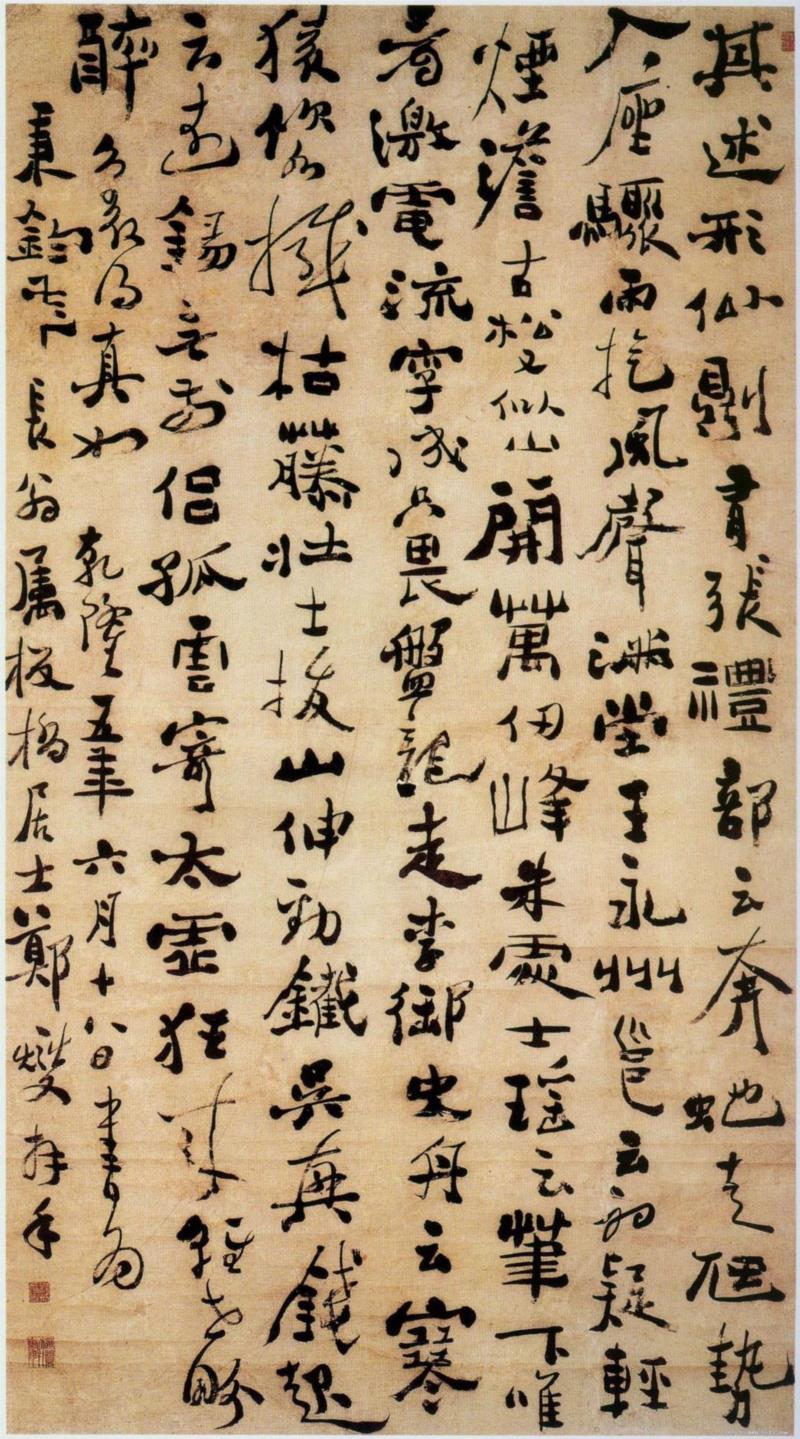 其述形似則有張禮部云奔虵走虺勢
入座驟雨旋風聲滿堂王永州邕云初疑輕
煙澹古松又似山開萬仞峰朱處士瑤云筆下唯
看激電流字成只畏盤龍走李御史舟云寒
猿飲水撼枯藤壯士拔山伸勁鐵吳興錢起
云遠錫無前侶孤雲寄太虛狂來輕世界
醉得真如 乾隆五年六月十八日書為
秉鈞長翁屬板橋居士鄭燮拜手